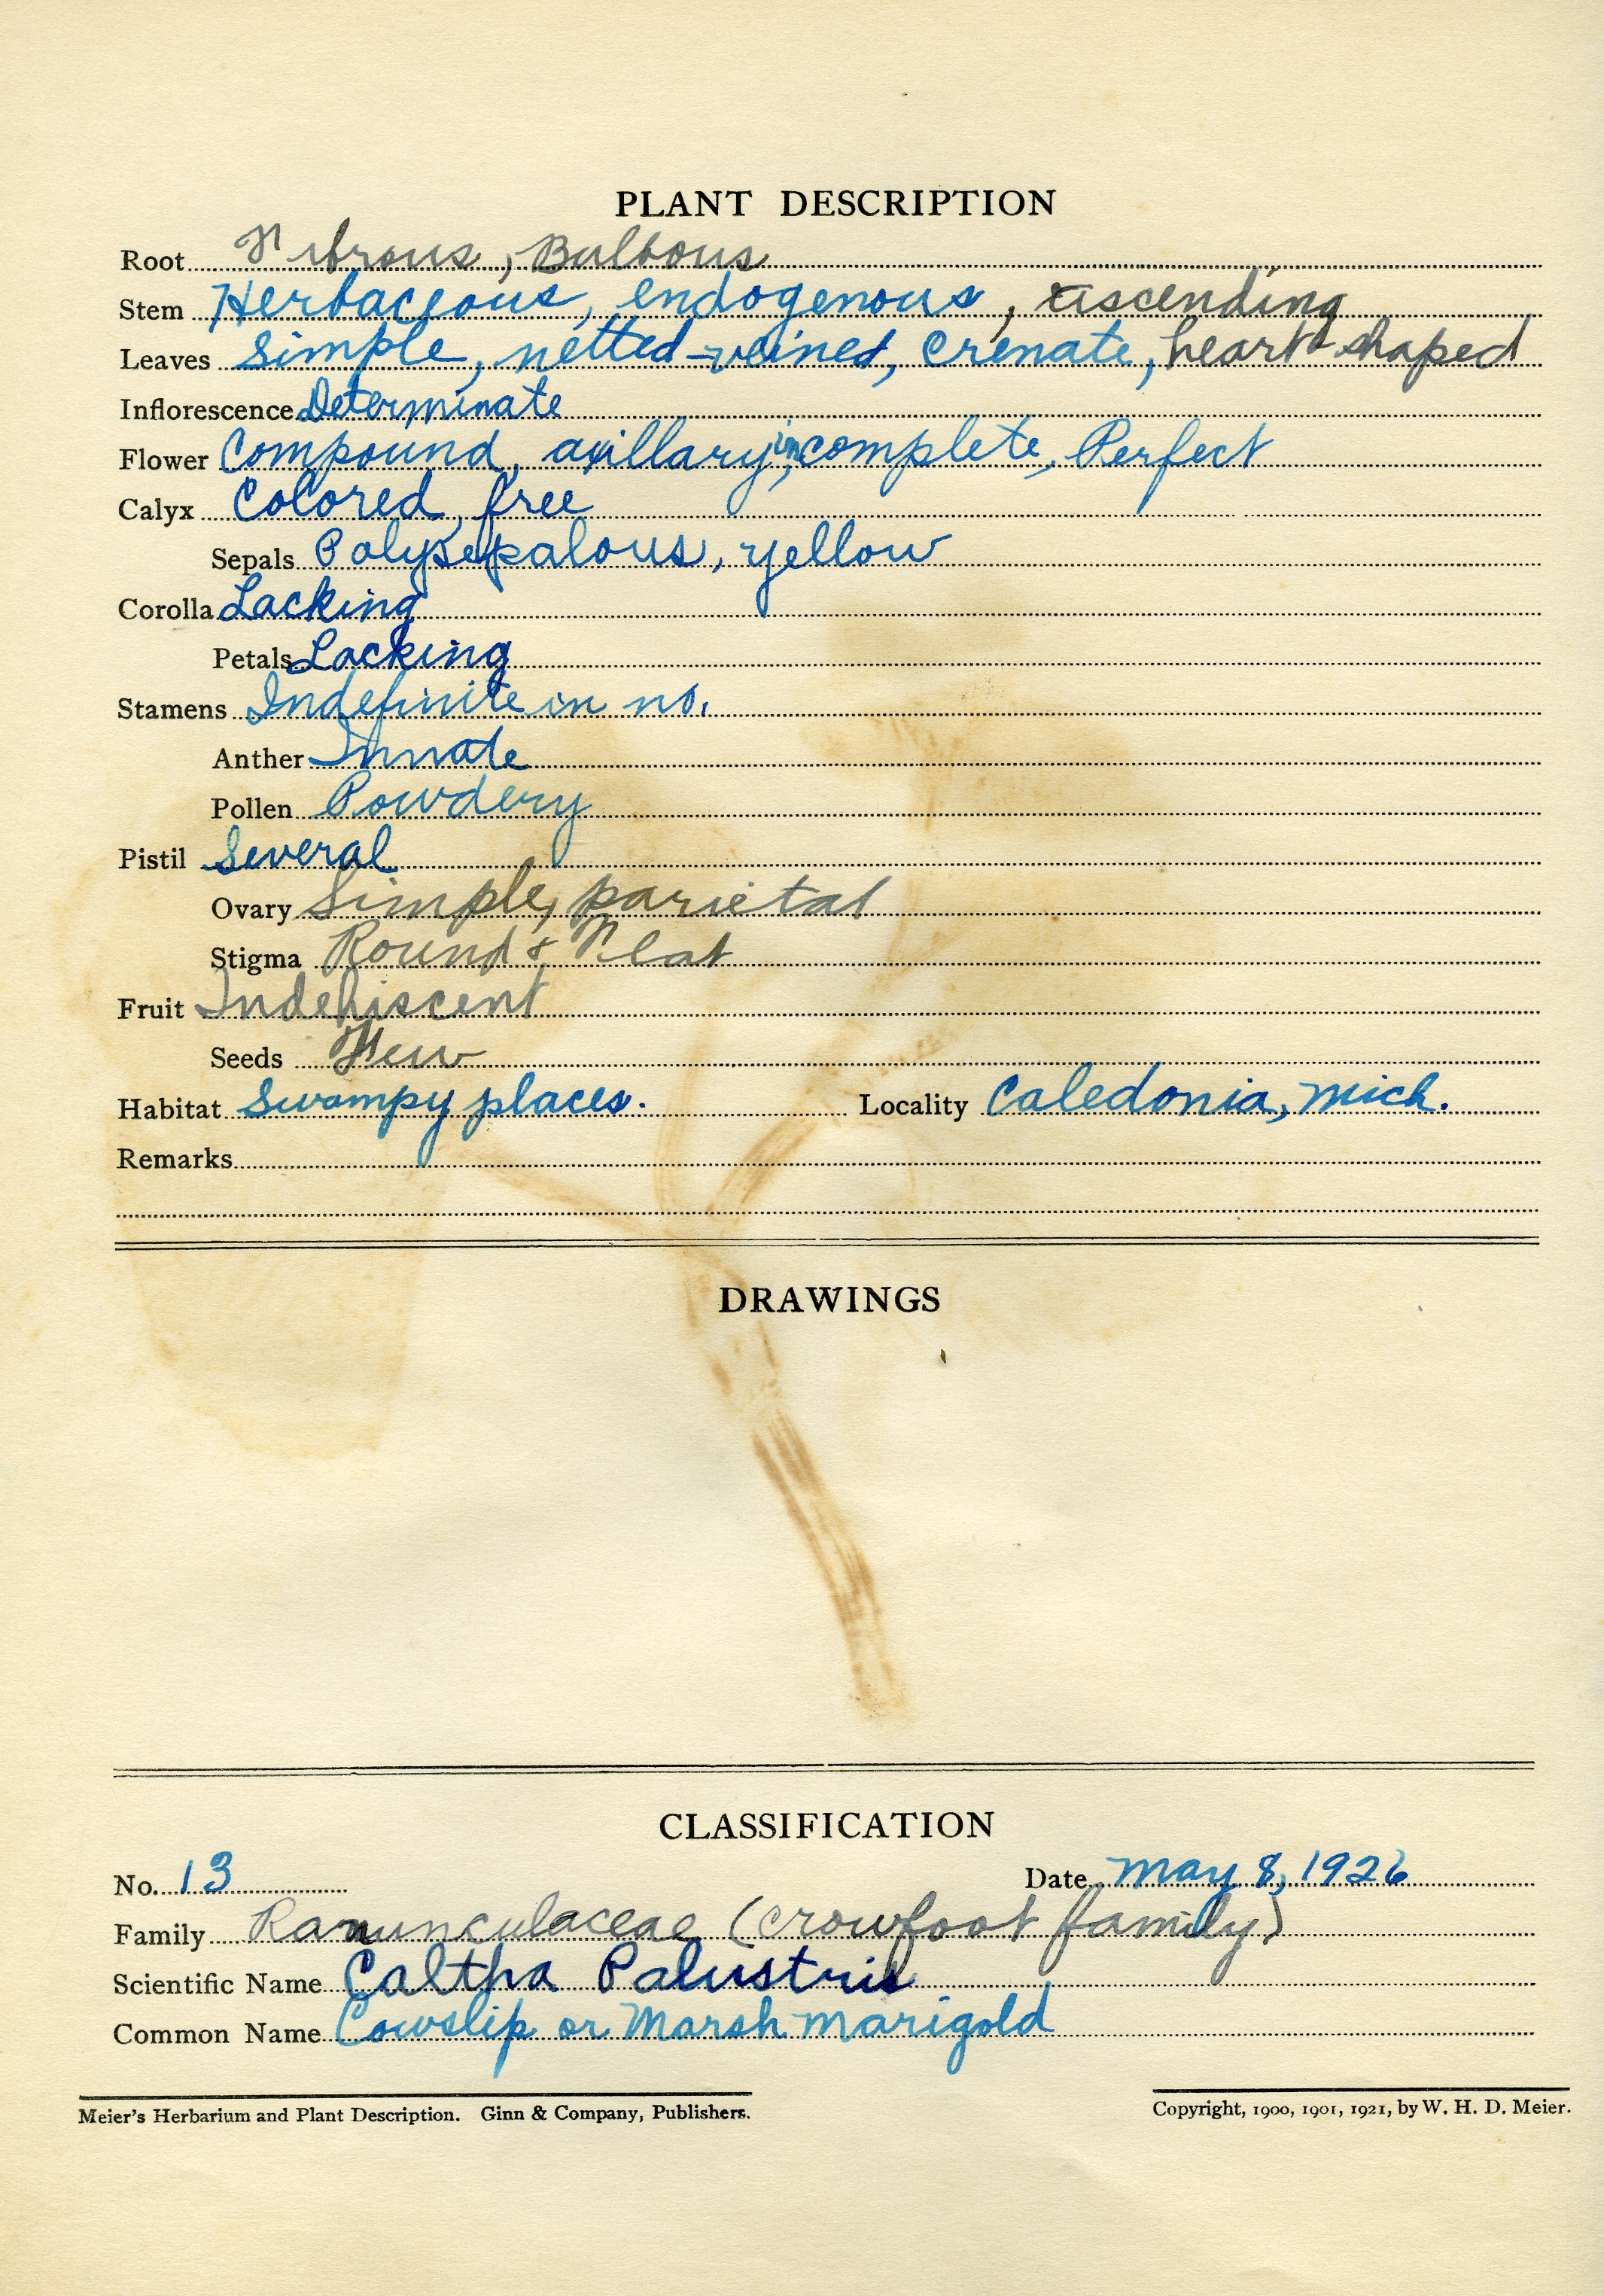 PLANT DESCRIPTION
Root Fibrous, Bulbous
Stem Herbaceous, endogenous, ascending
Leaves Simple, netted-veined, crenate, heart-shaped
Inflorescence Determinate
Flower Compound, axillary, incomplete, Perfect
Calyx Colored, free
Sepals Polysepalous, yellow
Corolla Lacking
Petals Lacking
Stamens Indefinite in no.
Anther Innate
Pollen Powdery
Pistil Several
Ovary Simple, parietal
Stigma Round & Flat
Fruit Indehiscent
Seeds Few
Habitat Swampy places. Locality Caledonia, Mich.
Remarks
DRAWINGS
CLASSIFICATION
No. 13 Date May 8, 1926
Family Ranunculaceae (Crowfoot family)
Scientific Name Caltha Palustris
Common Name Cowslip or Marsh Marigold
Meier's Herbarium and Plant Description. Ginn & Company, Publishers. Copyright, 1900, 1901, 1921, by W. H. D. Meier.